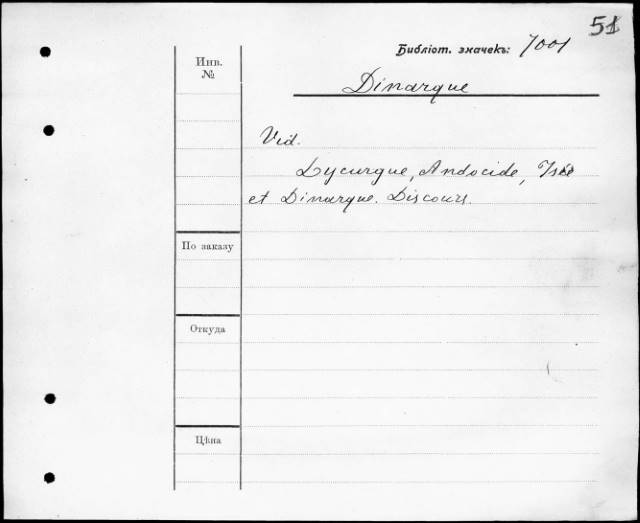 51
Библіот. значекъ: 7001
Инв. №
Dinarque
Vid.
Lycurgue, Andocide, Isée
et Dinarque. Discours.
По заказу
Откуда
Цѣна